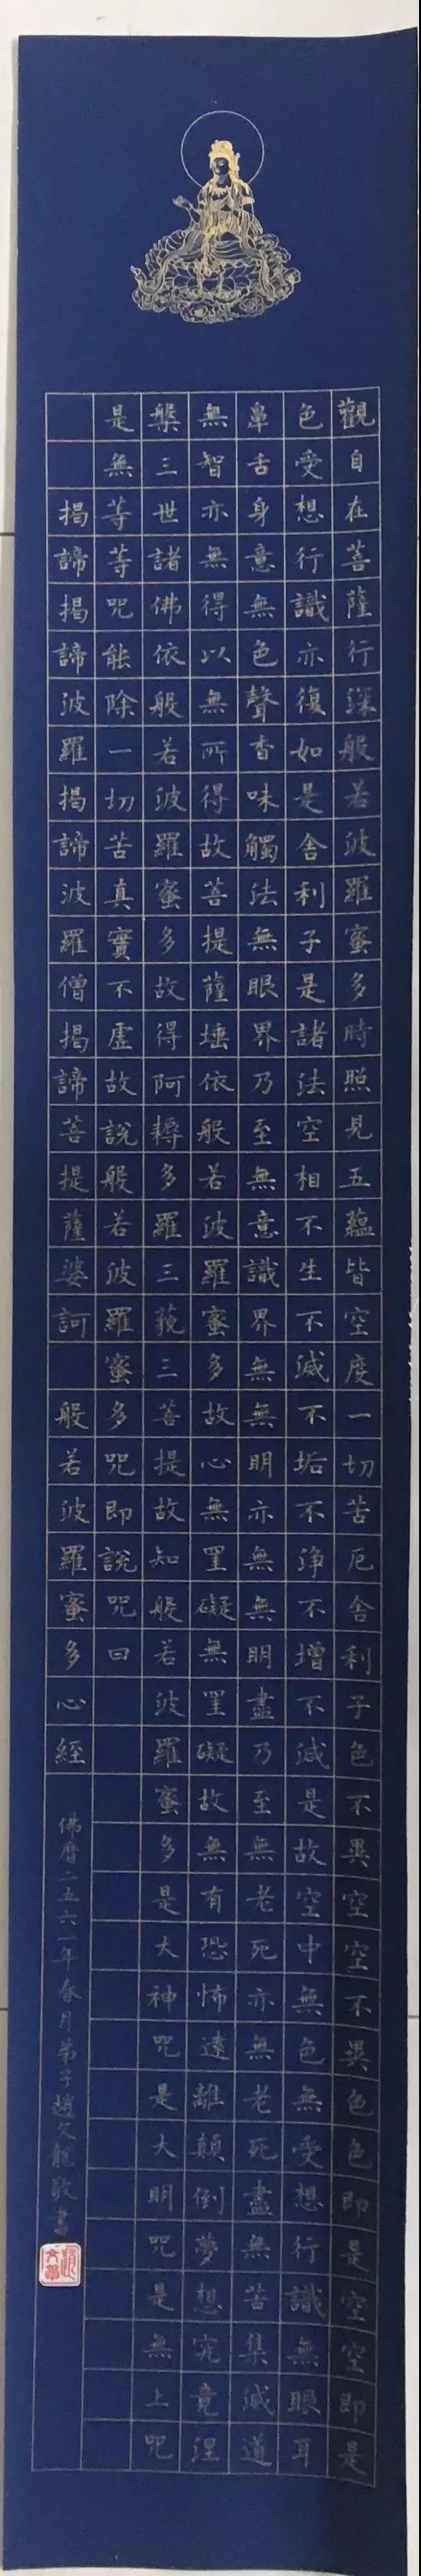 觀自在菩薩行深般若波羅蜜多時照見五蘊皆空度一切苦厄舍利子色不異空空不異色色即是空空即是
色受想行識亦復如是舍利子是諸法空相不生不滅不垢不淨不增不減是故空中無色無受想行識無眼耳
鼻舌身意無色聲香味觸法無眼界乃至無意識界無無明亦無無明盡乃至無老死亦無老死盡無苦集滅道
無智亦無得以無所得故菩提薩埵依般若波羅蜜多故心無罣礙無罣礙故無有恐怖遠離顛倒夢想究竟涅
槃三世諸佛依般若波羅蜜多故得阿耨多羅三藐三菩提故知般若波羅蜜多是大神咒是大明咒是無上咒
是無等等咒能除一切苦真實不虛故說般若波羅蜜多咒即說咒曰
揭諦揭諦波羅揭諦波羅僧揭諦菩提薩婆訶 般若波羅蜜多心經
佛曆二五六一年春月弟子趙文龍敬書